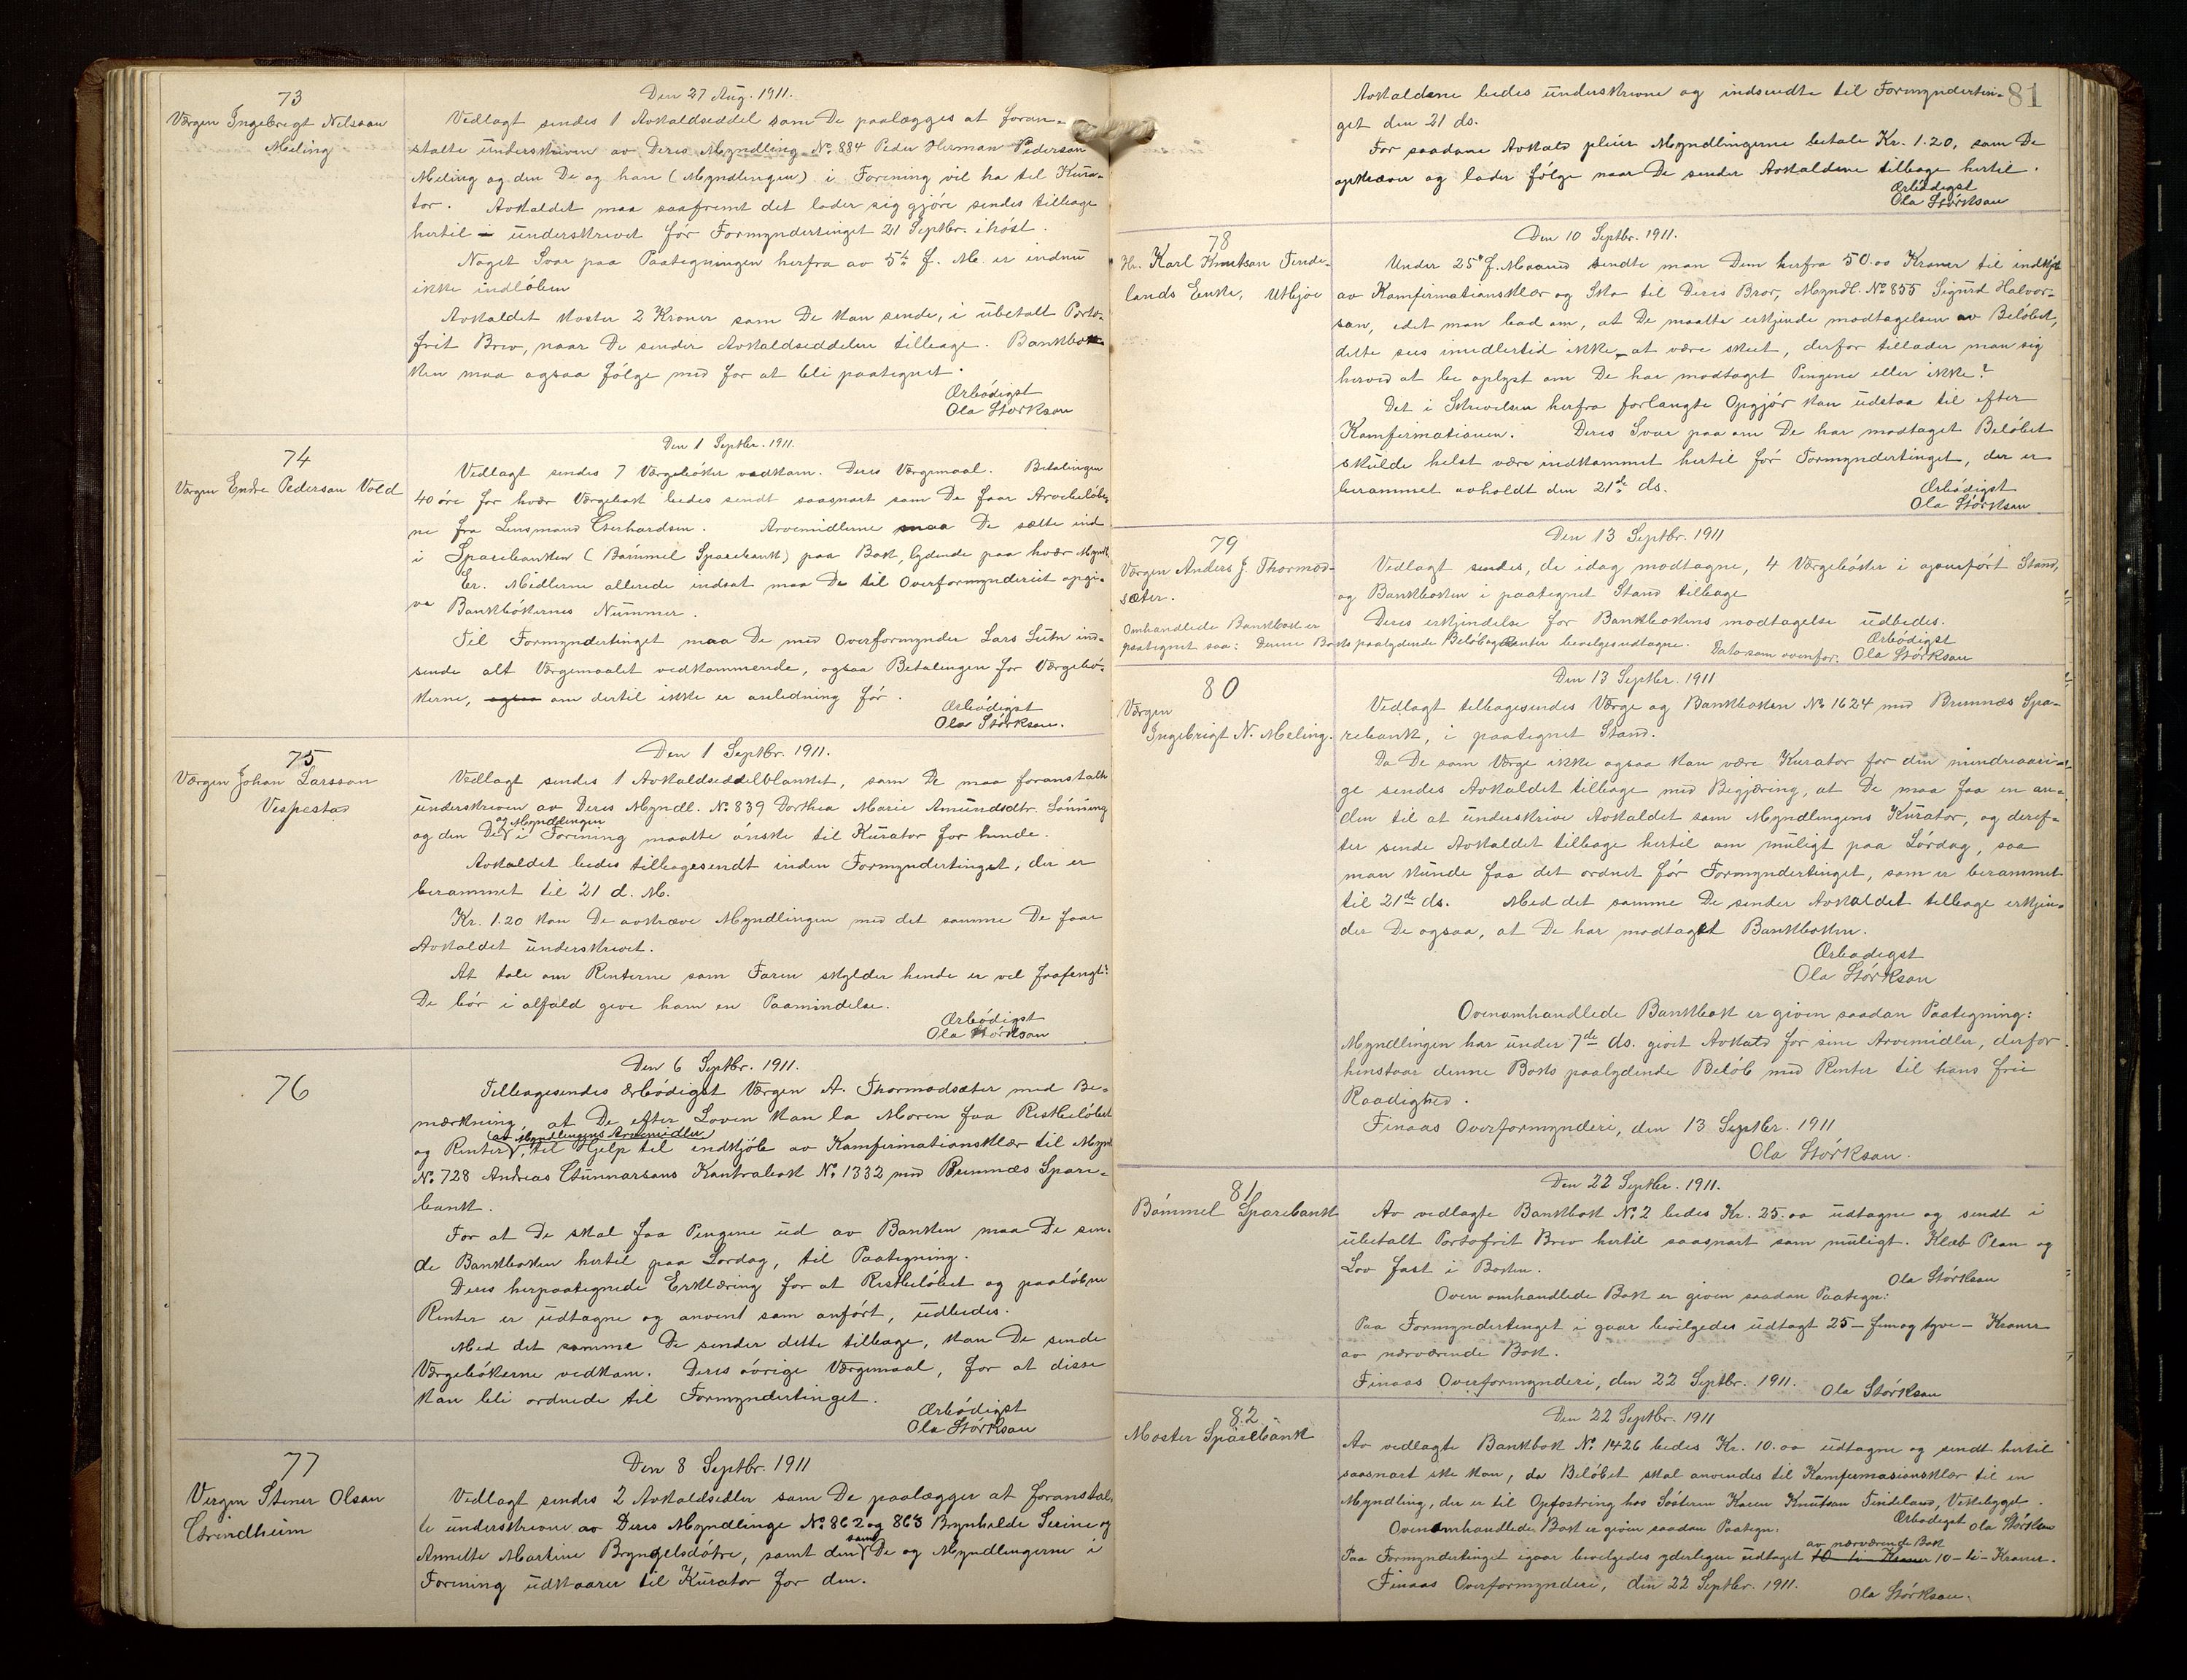 73
Værgen Ingebrigt Nelsson
Meling
Den 27 Aug. 1911.
Vedlagt sendes 1 Avkaldseddel som De paalægges at foran-
stalte underskreven av Deres Myndling No 884 Peder Herman Pederson
Meling og den De og han (Myndlingen) i Forening vil ha til Kura-
tor. Avkaldet maa saafremt det lader sig gjøre sendes tilbage
hertil – underskrevet før Formyndertinget 21 Septbr. ihøst.
Noget Svar paa Paategningen herfra av 5te f. M. er indnu
ikke indløben
Avkaldet koster 2 Kroner som De kan sende, i ubetalt Porto-
frit Brev, naar De sender Avkaldseddelen tilbage. Bankbok-
ken maa ogsaa følge med for at bli paategnet.
Ærbødigst
Ola Størkson
74
Værgen Endre Pederson Vold
Den 1 Septbr. 1911.
Vedlagt sendes 7 Værgebøker vedkom. Deres Værgemaal. Betalingen
40 øre for hvær Værgebok bedes sendt saasnart som De faar Arvebeløbe-
ne fra Lensmand Gerhardsen. Arvemidlerne maa De sætte ind
i Sparebanken (Bømmel Sparebank) paa Bok, lydende paa hvær Myndl.
Er Midlerne allerede indsat maa De til Overformynderiet opgi-
ve Bankbøkernes Nummer.
Til Formyndertinget maa De med Overformynder Lars Sætre ind-
sende alt Værgemaalet vedkommende, ogsaa Betalingen for Værgebø-
kerne, ogsaa om dertil ikke er anledning før.
Ærbødigst
Ola Størkson.
75
Værgen Johan Larsson
Vespestad
Den 1 Septbr. 1911.
Vedlagt sendes 1 Avkaldseddelblanket, som De maa foranstalte
underskreven av Deres Myndl. No 839 Dorthea Marie Amundsdtr. Lønning
og Myndlingen
og den De i Forening maatte ønske til Kurator for hende.
Avkaldet bedes tilbagesendt inden Formyndertinget, der er
berammet til 21 d. M.
Kr. 1.20 kan De avkræve Myndlingen med det samme De faar
Avkaldet underskrevet.
At tale om Renterne som Faren skylder hende er vel faafengt?
De bør i alfald give ham en Paamindelse.
Ærbødigst
Ola Størkson
76
Den 6 Septbr. 1911.
Tilbagesendes ærbødigst Værgen A. Thormodsæter med Be-
mærkning at De efter Loven kan la Moren faa Restbeløbet
(av Myndlingens Arvemidler)
og Renter, til Hjelp til indkjøb av Konfirmationsklær til Myndl.
No 728 Andreas Gunnarsons Kontrabok No 1332 med Bremnæs Spare-
bank.
For at De skal faa Pengene ud av Banken maa De sen-
de Bankboken hertil paa Lørdag, til Paategning.
Deres herpaategnede Erklæring for at Restbeløbet og paaløbne
Renter er udtagne og anvent som anført, udbedes.
Med det samme De sender dette tilbage, kan De sende
Værgebøkerne vedkom. Deres øvrige Værgemaal, for at disse
kan bli ordnede til Formyndertinget.
Ærbødigst
Ola Størkson
77
Vergen Stener Olson
Grindheim
Den 8 Septbr. 1911
Vedlagt sendes 2 Avkaldsedler som De paalægger at foranstal-
te underskrevne av Deres Myndlinge No 862 og 863 Brynhilde Serine og
som
Annette Martine Bryngelsdøtre, samt den De og Myndlingerne i
Forening udkaarer til Kurator for dem.
81
Avkaldene bedes underskrevne og indsendte til Formyndertin-
get den 21 ds.
For saadane Avkald pleier Myndlingerne betale Kr. 1.20, som De
opkræver og lader følge naar De sender Avkaldene tilbage hertil.
Ærbødigst
Ola Størkson
78
Hr. Karl Knutson Tinde-
lands Enke, Utbjoe
Den 10 Septbr. 1911.
Under 25de f. Maaned sendte man Dem herfra 50.00 Kroner til indkjøb
av Konfirmationsklær og Sko til Deres Bror, Myndl. No 855 Sigurd Halvor-
son, idet man bad om, at De maatte erkjende modtagelsen av Beløbet,
dette sees imidlertid ikke at være skeet, derfor tillader man sig
herved at be oplyst om De har modtaget Pengene eller ikke?
Det i Skrivelsen herfra forlangte Opgjør kan udstaa til efter
Konfirmationen. Deres Svar paa om De har modtaget Beløbet
skulde helst være indkommet hertil før Formyndertinget, der er
berammet avholdt den 21de ds.
Ærbødigst
Ola Størkson
79
Værgen Anders J. Thormod-
sæter.
Den 13 Septbr. 1911
Vedlagt sendes, de idag modtagne, 4 Værgebøker i ajourført Stand,
og Bankboken i paategnet Stand tilbage
Deres erkjendelse for Bankbokens modtagelse udbedes.
Ærbødigst
Omhandlede Bankbok er
paategnet saa: Denne Boks paalydende Beløb og Renter bevilges udtagne. Dato som ovenfor. Ola Størkson
80
Værgen
Ingebrigt N. Meling.
Den 13 Septbr. 1911
Vedlagt tilbagesendes Værge og Bankboken No 1624 med Bremnæs Spa-
rebank, i paategnet Stand.
Da De som Værge ikke ogsaa kan være Kurator for den mindreaari-
ge sendes Avkaldet tilbage med Begjæring, at De maa faa en an-
den til at underskrive Avkaldet som Myndlingens Kurator, og deref-
ter sende Avkaldet tilbage hertil om muligt paa Lørdag, saa
man kunde faa det ordnet før Formyndertinget, som er berammet
til 21de ds. Med det samme De sender Avkaldet tilbage erkjen-
der De ogsaa, at De har modtaget Bankboken.
Ærbødigst
Ola Størkson
Ovenomhandlede Bankbok er given saadan Paategning:
Myndlingen har under 7de ds. givet Avkald for sine Arvemidler, derfor
henstaar denne Boks paalydende Beløb med Renter til hans frie
Raadighed.
Finaas Overformynderi, den 13 Septbr. 1911
Ola Størkson.
81
Bømmel Sparebank
Den 22 Septbr. 1911.
Av vedlagte Bankbok No 2 bedes Kr. 25.00 udtagne og sendt i
ubetalt Portofrit Brev hertil saasnart som muligt. Kleb Plan og
Lov fast i Boken.
Ola Størkson
Oven omhandlede Bok er given saadan Paategn:
Paa Formyndertinget i gaar bevilgedes udtagt 25 – fem og tyve – Kroner
av nærværende Bok.
Finaas Overformynderi, den 22 Septbr. 1911.
Ola Størkson
82
Moster Sparebank
Den 22 Septbr. 1911
Av vedlagte Bankbok No 1426 bedes Kr. 10.00 udtagne og sendt hertil
saasnart ske kan, da Beløbet skal anvendes til Konfirmasionsklær til en
Myndling, der er til Opfostring hos Søsteren Karen Knutson Tindeland, Vestbygd.
Ærbødigst Ola Størkson
Ovenomhandlede Bok er given saadan Paategn:
av nærværende Bok
Paa Formyndertinget igaar bevilgedes yderligere udtaget 10 – ti – Kroner 10 – ti – Kroner.
Finaas Overformynderi, den 22 Septbr. 1911.
Ola Størkson.